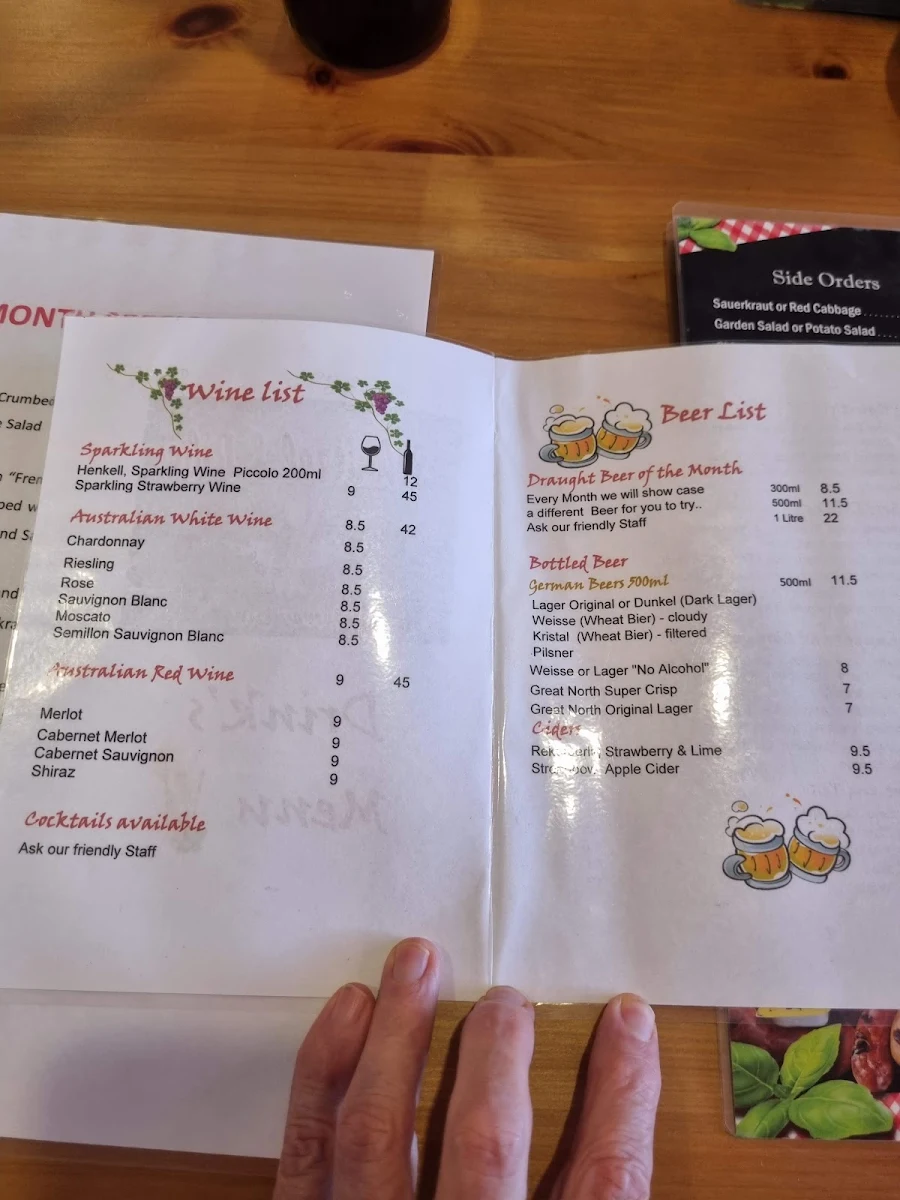 MONTH
Crumbed
Salad
"Fren
ped w
nd Sa
nd
Side Orders
Sauerkraut or Red Cabbage..........
Garden Salad or Potato Salad.....
Wine list
Sparkling Wine
Henkell, Sparkling Wine Piccolo 200ml 12
Sparkling Strawberry Wine 9 45
Australian White Wine 8.5 42
Chardonnay 8.5
Riesling 8.5
Rose 8.5
Sauvignon Blanc 8.5
Moscato 8.5
Semillon Sauvignon Blanc 8.5
Australian Red Wine 9 45
Merlot 9
Cabernet Merlot 9
Cabernet Sauvignon 9
Shiraz 9
Cocktails available
Ask our friendly Staff
Drinks
Menu
Beer List
Draught Beer of the Month
Every Month we will show case 300ml 8.5
a different Beer for you to try.. 500ml 11.5
Ask our friendly Staff 1 Litre 22
Bottled Beer
German Beers 500ml 500ml 11.5
Lager Original or Dunkel (Dark Lager)
Weisse (Wheat Bier) - cloudy
Kristal (Wheat Bier) - filtered
Pilsner
Weisse or Lager "No Alcohol" 8
Great North Super Crisp 7
Great North Original Lager 7
Ciders
Strawberry & Lime 9.5
Apple Cider 9.5